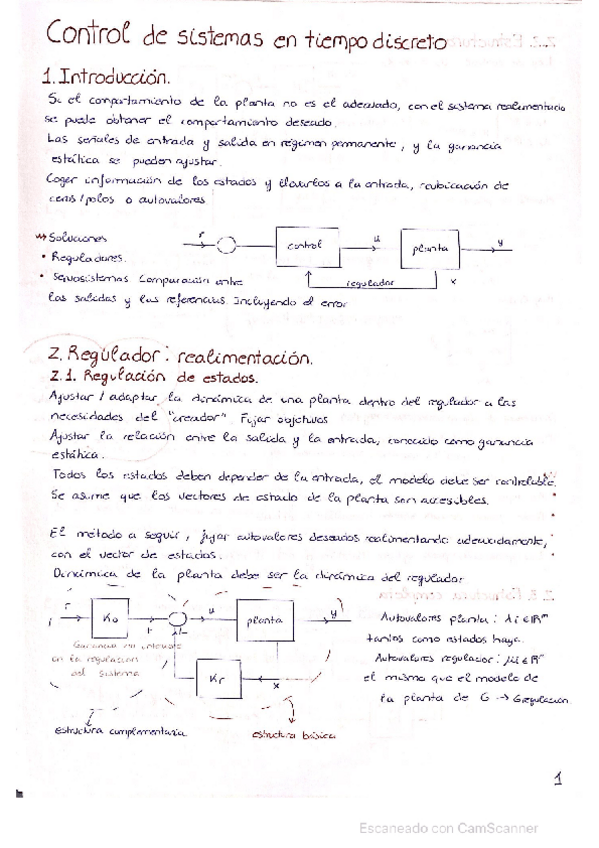 Control de sistemas en tiempo discreto
1. Introducción.
Si el comportamiento de la planta no es el adecuado, con el sistema realimentado
se puede obtener el comportamiento deseado.
Las señales de entrada y salida en régimen permanente, y la ganancia
estática se pueden ajustar.
Coger información de los estados y llevarlos a la entrada, reubicación de
ceros / polos o autovalores
Soluciones
• Reguladores.
• Servosistemas Comparación entre
las salidas y las referencias. Incluyendo el error
r
control
u
planta
y
regulador
x
2. Regulador: realimentación.
2.1. Regulación de estados.
Ajustar / adaptar la dinámica de una planta dentro del regulador a las
necesidades del "creador". Fijar objetivos
Ajustar la relación entre la salida y la entrada, conocido como ganancia
estática.
Todos los estados deben depender de la entrada, el modelo debe ser controlable.
Se asume que los vectores de estado de la planta son accesibles.
El método a seguir, fijar autovalores deseados realimentando adecuadamente,
con el vector de estados.
Dinámica de la planta debe ser la dinámica del regulador
r
Ko
u
planta
y
Kr
x
en la regulación
del sistema
estructura complementaria
estructura básica
Autovalores planta: λi ∈ ℝⁿ
tantos como estados haya.
Autovalores regulador: μi ∈ ℝⁿ
el mismo que el modelo de
la planta de G → Gregulación
1
Escaneado con CamScanner